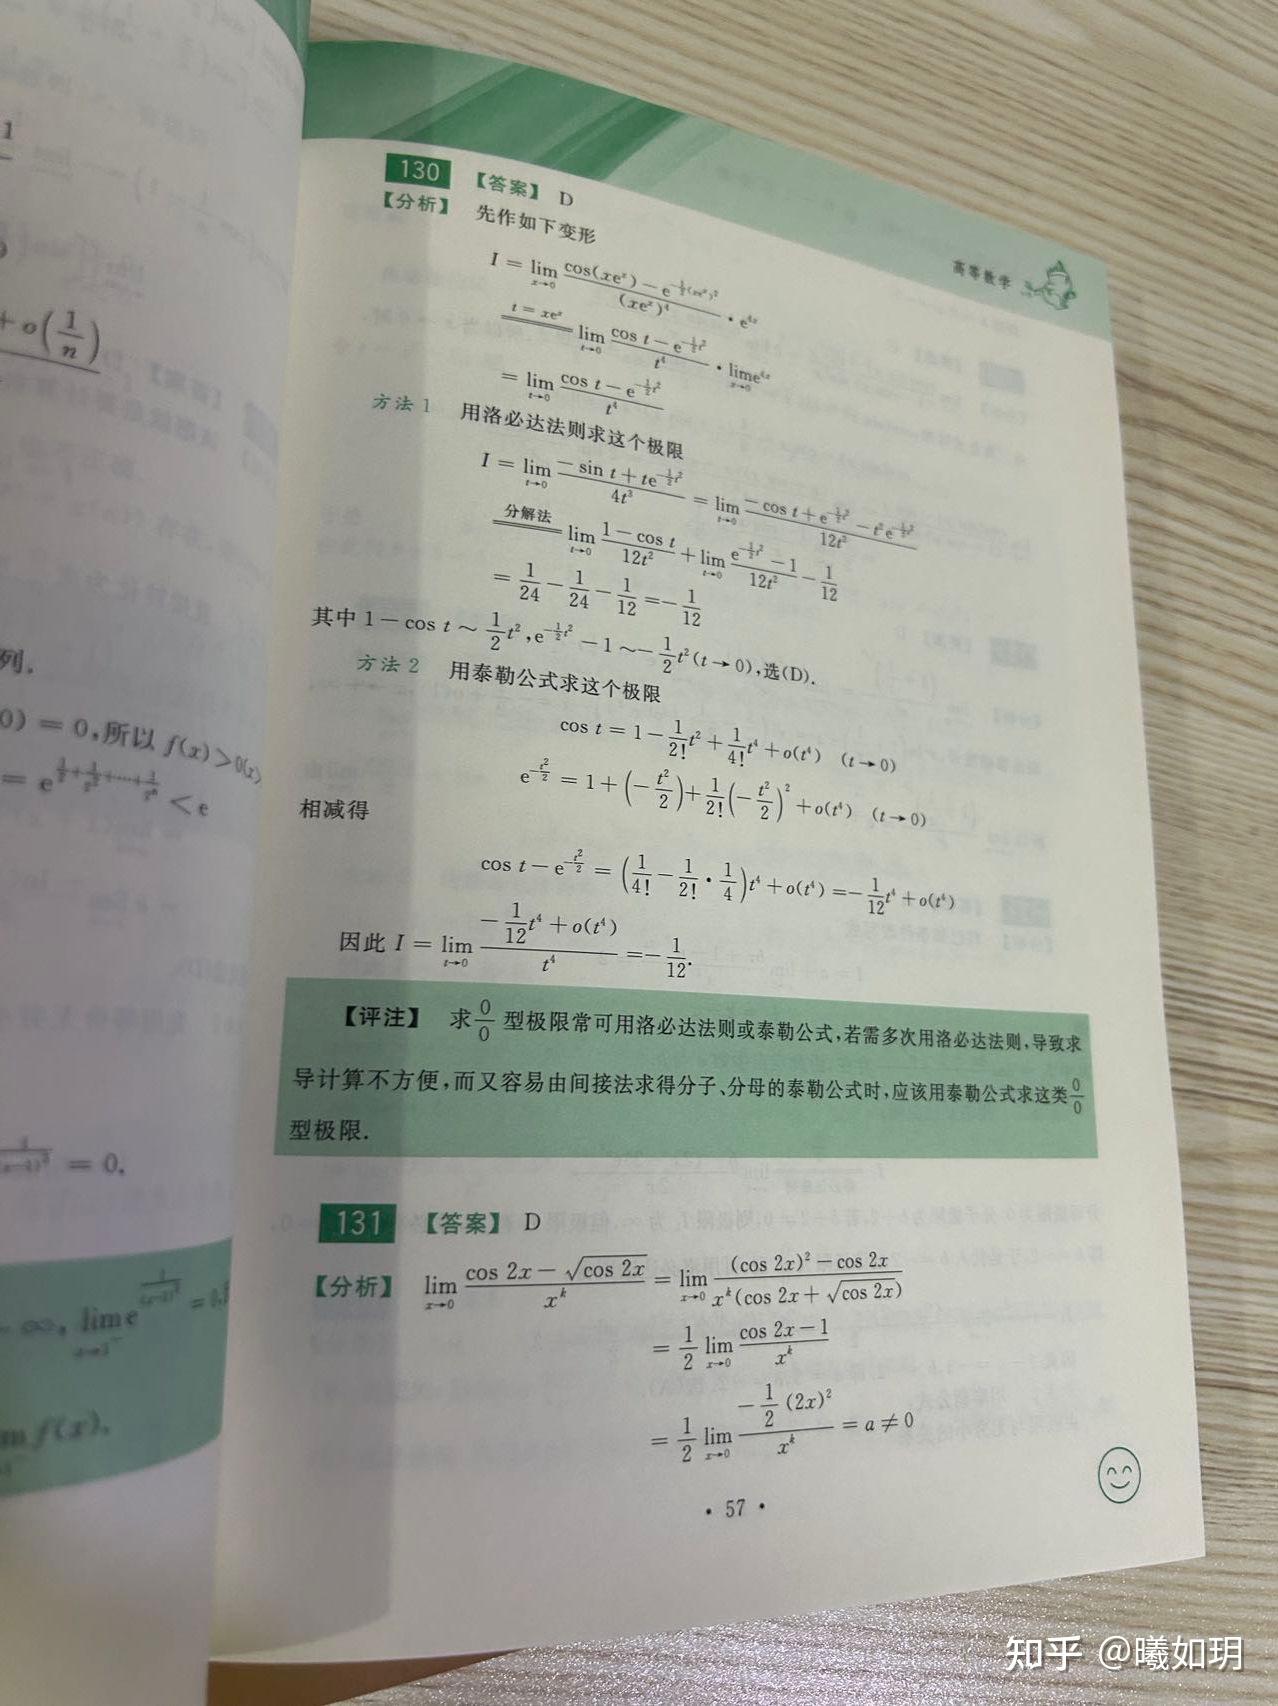 1
+ o(1/n)
列.
0) = 0,所以 f(x) > 0(x)
< e
= 0.
lim f(x),
高等数学
130 【答案】 D
【分析】 先作如下变形
I = lim_{x→0} (cos(xe^x) − e^{−½(xe^x)²})/(xe^x)⁴ · e^{4x}
t = xe^x lim_{t→0} (cos t − e^{−½t²})/t⁴ · lim_{x→0} e^{4x}
= lim_{t→0} (cos t − e^{−½t²})/t⁴
方法 1 用洛必达法则求这个极限
I = lim_{t→0} (−sin t + te^{−½t²})/4t³ = lim_{t→0} (−cos t + e^{−½t²} − t²e^{−½t²})/12t²
分解法 lim_{t→0} (1 − cos t)/12t² + lim_{t→0} (e^{−½t²} − 1)/12t² − 1/12
= 1/24 − 1/24 − 1/12 = −1/12
其中 1 − cos t ~ ½t², e^{−½t²} − 1 ~ −½t² (t → 0),选(D).
方法 2 用泰勒公式求这个极限
cos t = 1 − (1/2!)t² + (1/4!)t⁴ + o(t⁴) (t → 0)
e^{−t²/2} = 1 + (−t²/2) + (1/2!)(−t²/2)² + o(t⁴) (t → 0)
相减得
cos t − e^{−t²/2} = (1/4! − 1/2! · 1/4)t⁴ + o(t⁴) = −(1/12)t⁴ + o(t⁴)
因此 I = lim_{t→0} (−(1/12)t⁴ + o(t⁴))/t⁴ = −1/12.
【评注】 求 0/0 型极限常可用洛必达法则或泰勒公式,若需多次用洛必达法则,导致求
导计算不方便,而又容易由间接法求得分子、分母的泰勒公式时,应该用泰勒公式求这类 0/0
型极限.
131 【答案】 D
【分析】 lim_{x→0} (cos 2x − √(cos 2x))/x^k = lim_{x→0} ((cos 2x)² − cos 2x)/(x^k(cos 2x + √(cos 2x)))
= ½ lim_{x→0} (cos 2x − 1)/x^k
= ½ lim_{x→0} (−½(2x)²)/x^k = a ≠ 0
· 57 ·
知乎 @曦如玥